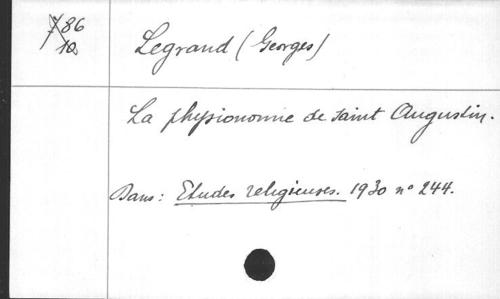 786
10
Legrand (Georges)
La physionomie de saint Augustin.
Dans: Etudes religieuses. 1930 n° 244.